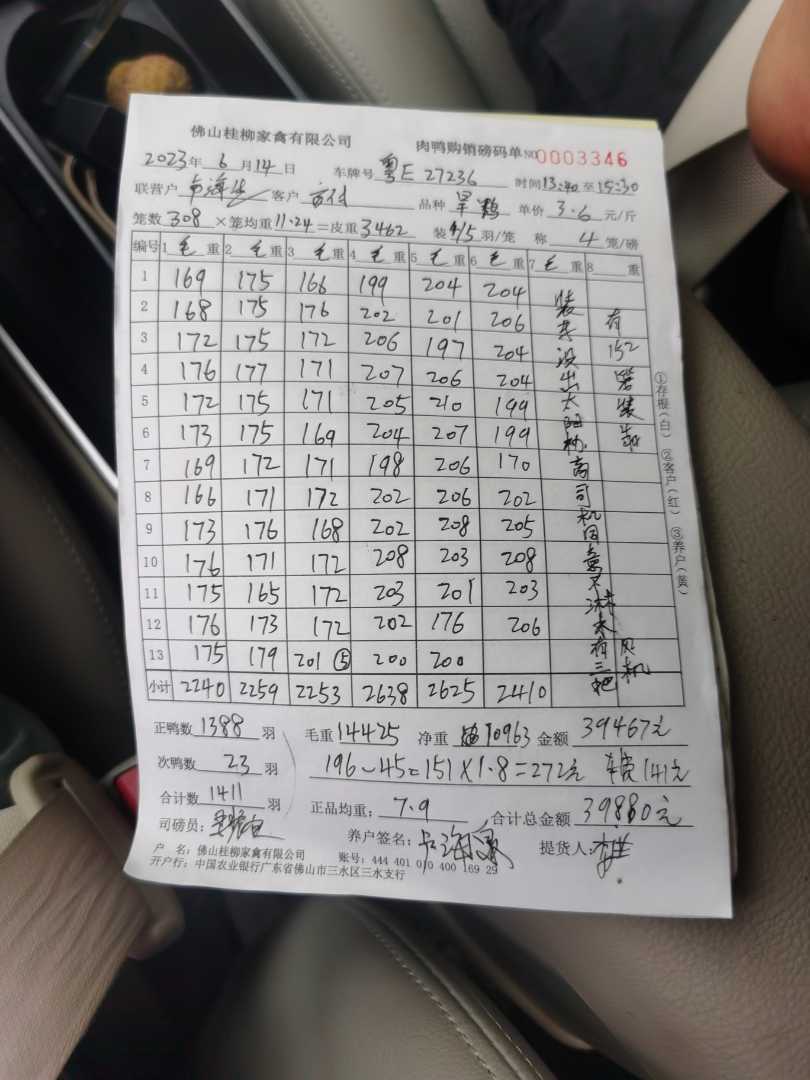 佛山桂柳家禽有限公司 肉鸭购销磅码单 NO 0003346
2023年 6月14日 车牌号 粤E 27236 时间13:40至15:30
联营户 客户 品种 单价 3.6 元/斤
笼数308×笼均重11.24=皮重3462 装4/5羽/笼 称 4 笼/磅
编号 1 毛 重 2 毛 重 3 毛 重 4 毛 重 5 毛 重 6 毛 重 7 毛 重 8 重
1 169 175 166 199 204 204
2 168 175 176 202 201 206
3 172 175 172 206 197 204
4 176 177 171 207 206 204
5 172 175 171 205 210 199
6 173 175 169 204 207 199
7 169 172 171 198 206 170
8 166 171 172 202 206 202
9 173 176 168 202 208 205
10 176 171 172 208 203 208
11 175 165 172 203 201 203
12 176 173 172 202 176 206
13 175 179 201 ⑤ 200 200
小计 2240 2259 2253 2638 2625 2410
有152
①存根(白) ②客户(红) ③养户(黄)
正鸭数 1388 羽 毛重 14425 净重 10963 金额 39467元
次鸭数 23 羽 196-45=151×1.8=272元 141元
合计数 1411 羽 正品均重: 7.9 合计总金额 39880元
司磅员: 养户签名: 提货人:
户 名: 佛山桂柳家禽有限公司 账号: 444 401 010 400 169 29
开户行: 中国农业银行广东省佛山市三水区三水支行